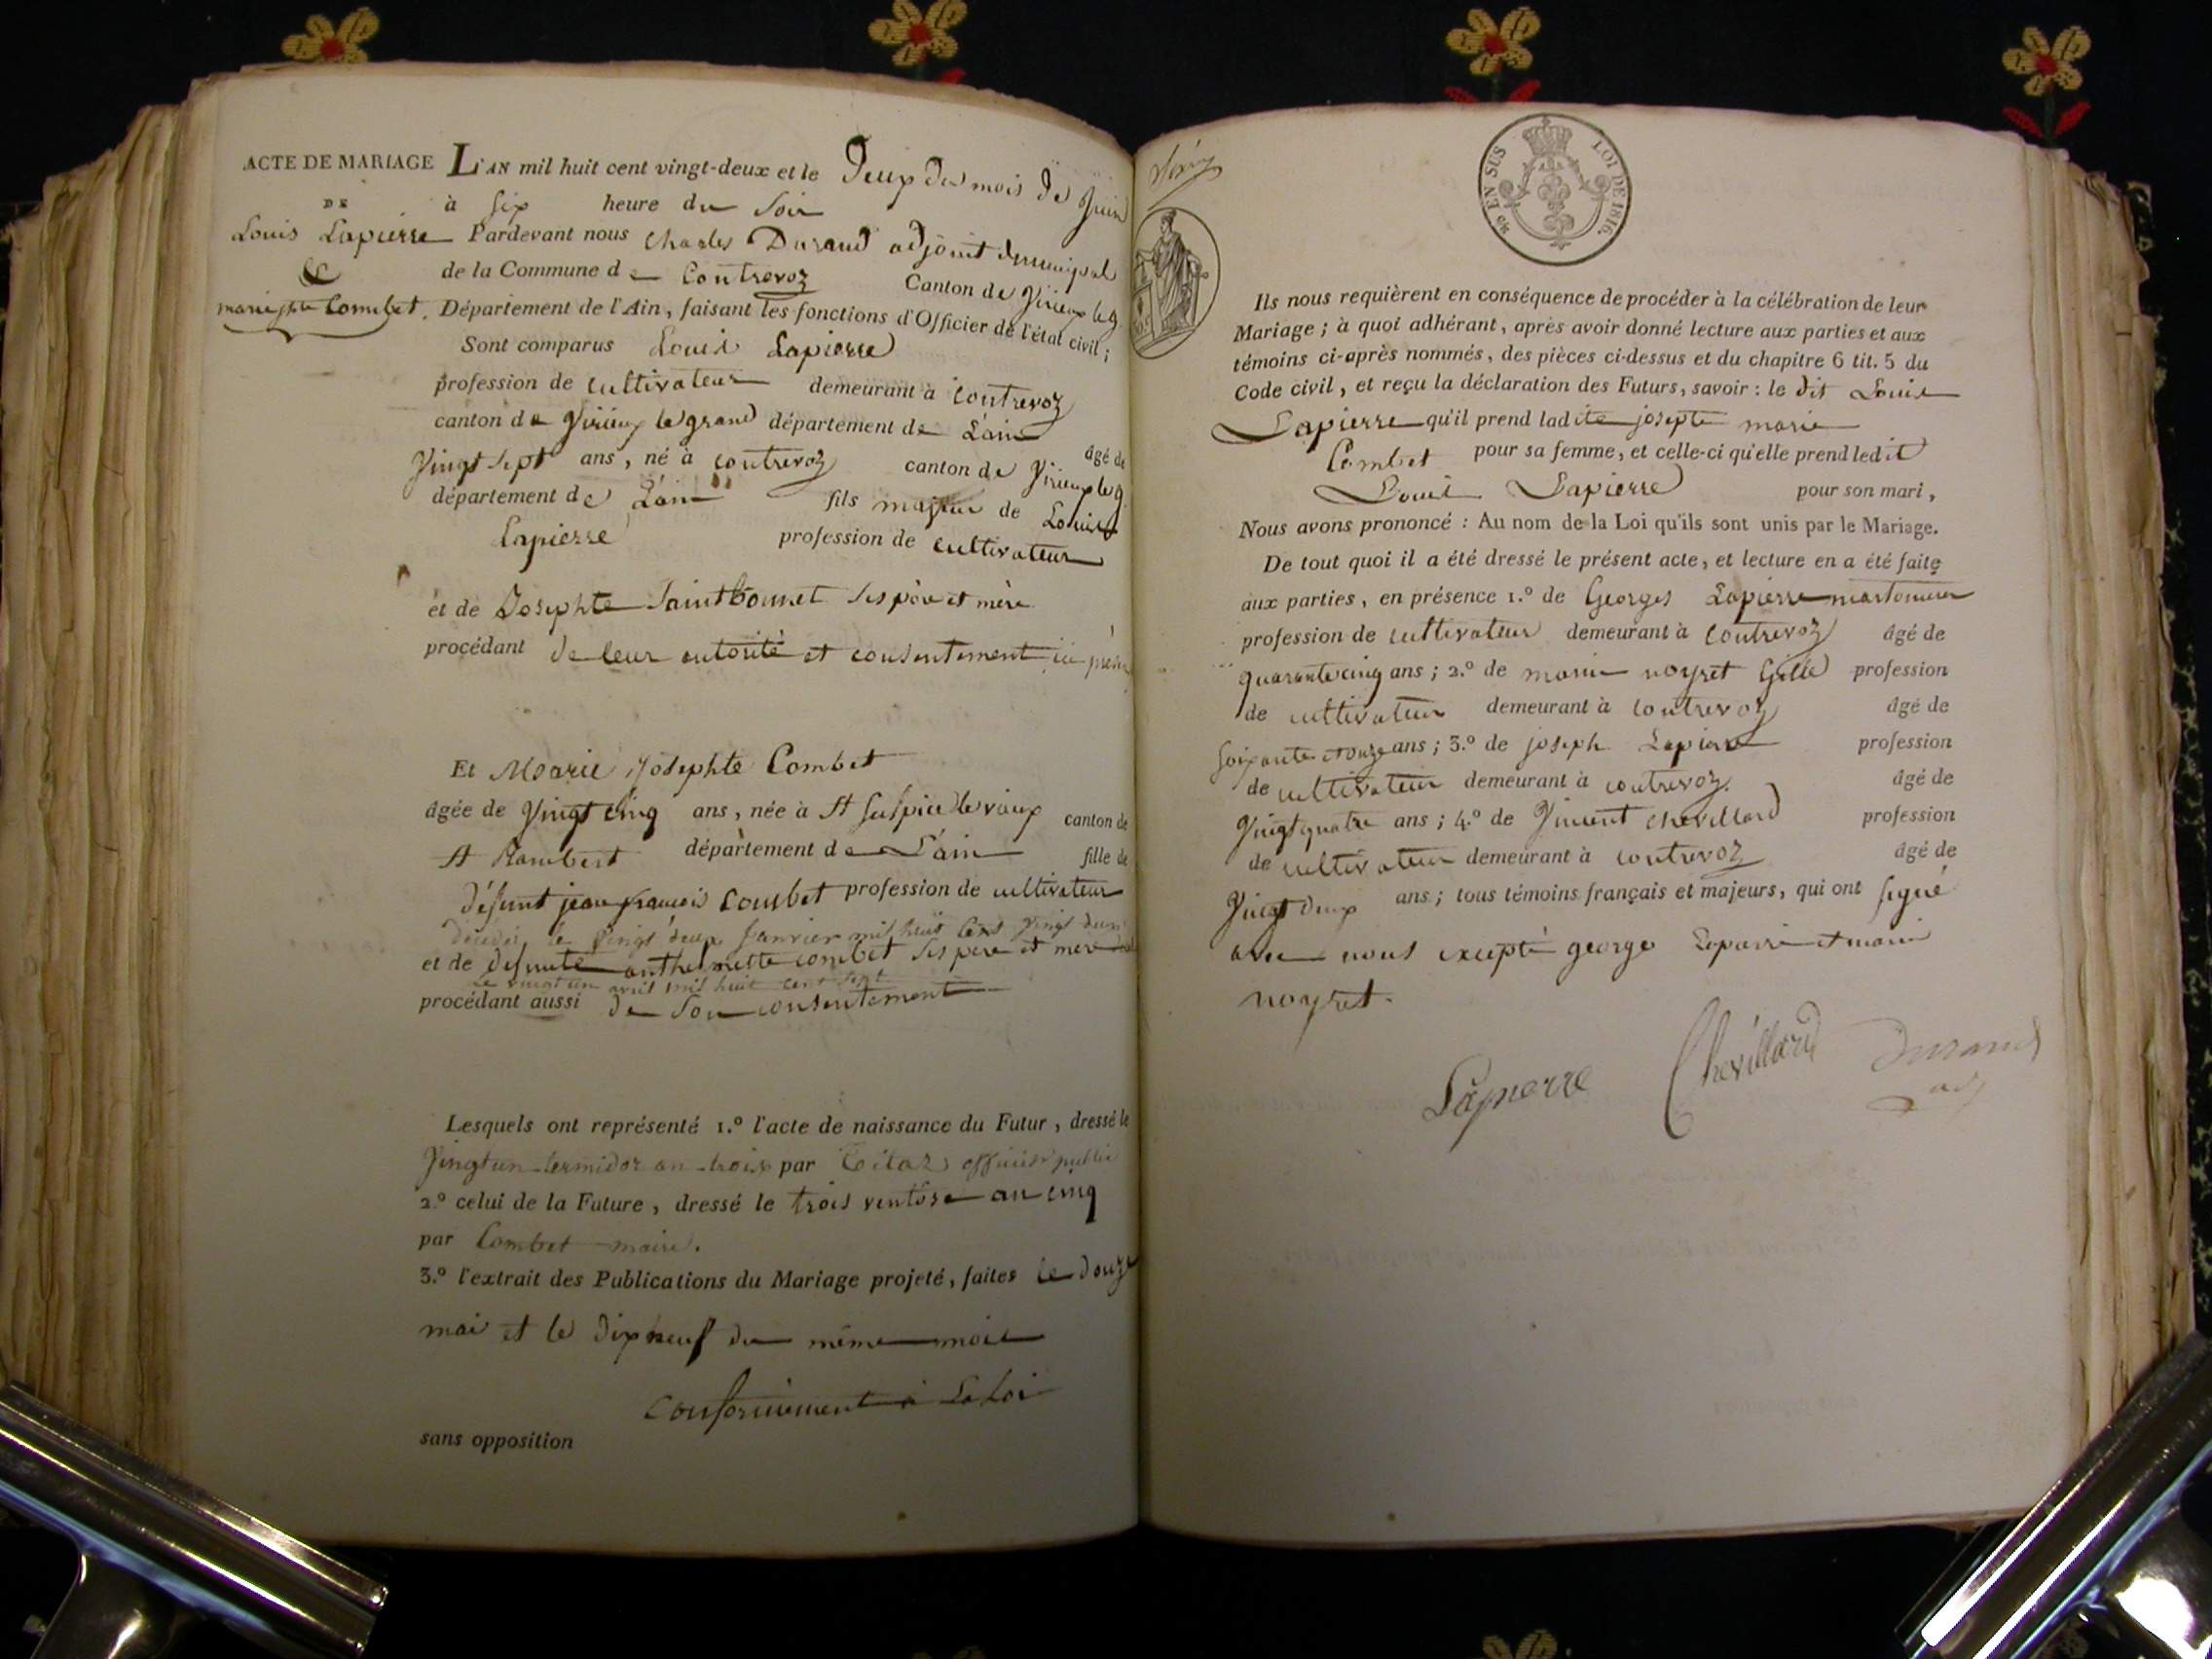 ACTE DE MARIAGE
DE
Louis Lapierre
&
marie jphte Combet.
L'AN mil huit cent vingt-deux et le Deux du mois de Juin
à Six heure du Soir
Pardevant nous Charles Durand adjoint municipal
de la Commune de Contrevoz Canton de Virieux le g
Département de l'Ain, faisant les fonctions d'Officier de l'état civil;
Sont comparus Louis Lapierre
profession de cultivateur demeurant à Contrevoz
canton de Virieux le grand département de L'ain âgé de
Vingt Sept ans, né à contrevoz canton de Virieux le g
département de L'ain fils majeur de Louis
Lapierre profession de cultivateur
et de Josephte Saintbonnet Ses père et mère
procédant de leur autorité et consentement ici
Et Marie Josephte Combet
âgée de Vingt cinq ans, née à St Sulpice le vieux canton de
St Rambert département de L'ain fille de
défunt jean francois Combet profession de cultivateur
décédé le Vingt deux Janvier mil huit Cent Vingt deux
et de défunte anthelmette combet Ses père et mère
Le vingt un avril mil huit cent Sept
procédant aussi de Son consentement
Lesquels ont représenté 1.º l'acte de naissance du Futur, dressé le
Vingt un termidor an trois par officier public
2.º celui de la Future, dressé le trois ventose an cinq
par Combet maire.
3.º l'extrait des Publications du Mariage projeté, faites le douze
mai et le dix neuf du même mois
conformément à La Loi
sans opposition
EN SUS LOI DE 1816.
Ils nous requièrent en conséquence de procéder à la célébration de leur
Mariage; à quoi adhérant, après avoir donné lecture aux parties et aux
témoins ci-après nommés, des pièces ci-dessus et du chapitre 6 tit. 5 du
Code civil, et reçu la déclaration des Futurs, savoir: le dit Louis
Lapierre qu'il prend ladite josepte marie
Combet pour sa femme, et celle-ci qu'elle prend ledit
Louis Lapierre pour son mari,
Nous avons prononcé: Au nom de la Loi qu'ils sont unis par le Mariage.
De tout quoi il a été dressé le présent acte, et lecture en a été faite
aux parties, en présence 1.º de Georges Lapierre
profession de cultivateur demeurant à Contrevoz âgé de
quarante cinq ans; 2.º de marin noyret profession
de cultivateur demeurant à Contrevoz âgé de
Soixante et onze ans; 3.º de joseph Lapierre profession
de cultivateur demeurant à contrevoz. âgé de
Vingt quatre ans; 4.º de Vincent chevillard profession
de cultivateur demeurant à contrevoz âgé de
Vingt deux ans; tous témoins français et majeurs, qui ont signé
avec nous excepté george Lapierre et marin
noyret.
Lapierre Chevillard Durand
adj